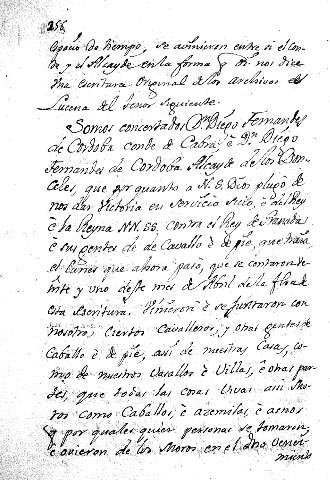 256
tiempo, se avinieron entre si el Con-
de y el Alcayde en la forma q.e nos dice
una escritura original de los Archivos de
Lucena del tenor siguiente.
Somos concertados D.n Diego Fernandes
de Cordoba conde de Cabra, è D.n Diego
Fernandes de Cordoba Alcayde de los Don-
celes, que por quanto a N. S. Dios plugo de
nos dar Victoria en servicio suio, è del Rey
è la Reyna NN. SS. contra el Rey de Granada
è sus gentes de Cavallo è de pie, que traia,
el Lunes que ahora pasò, que se contaron ve-
inte y uno deste mes de Abril de la fha de
esta Escritura. Vinieron è se juntaron con
nosotros ciertos Cavalleros, y otras gentes de
Caballo è de pie, asi de nuestras Casas, co-
mo de nuestros Vasallos è Villas, è otras par-
tes, que todas las cosas Vivas asi Mo-
ros como Caballos, è azemilas, è asnos
y por quales quier personas se tomaron,
è ovieron de los Moros en el dho Venci-
miento